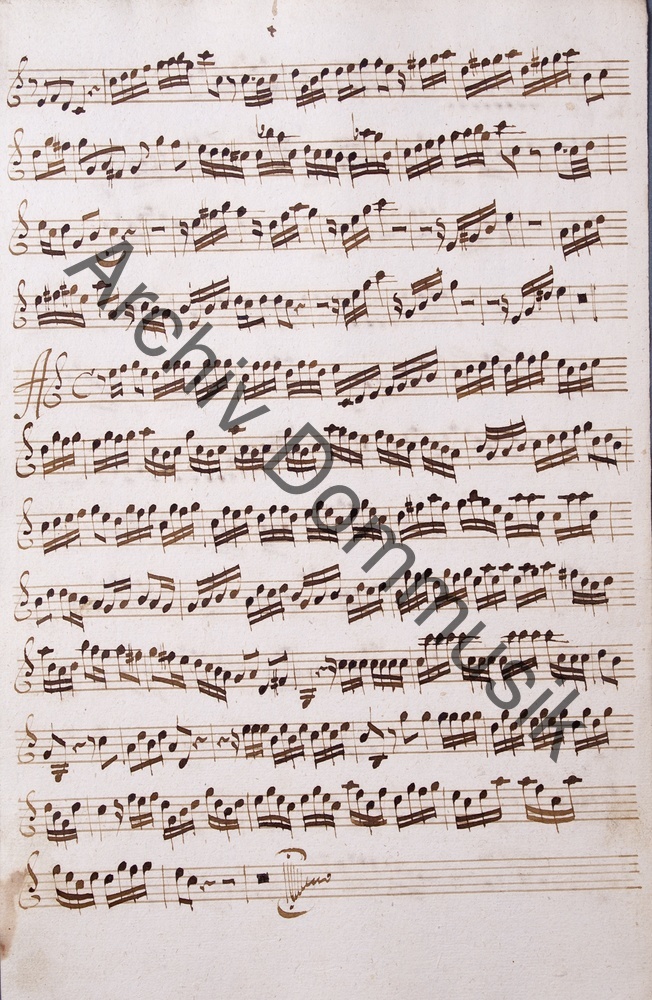 A
Archiv Dommusik